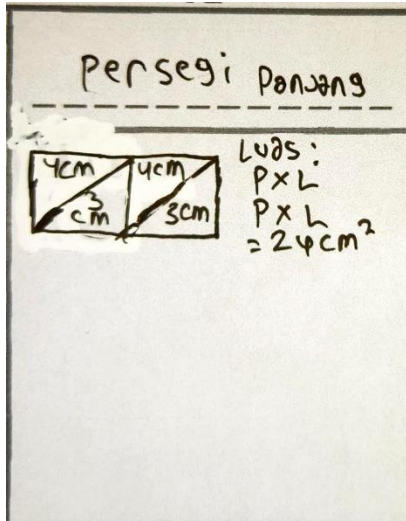 Persegi Panjang
4cm 4cm
3
cm 3cm
Luas:
PXL
PXL
=24cm²